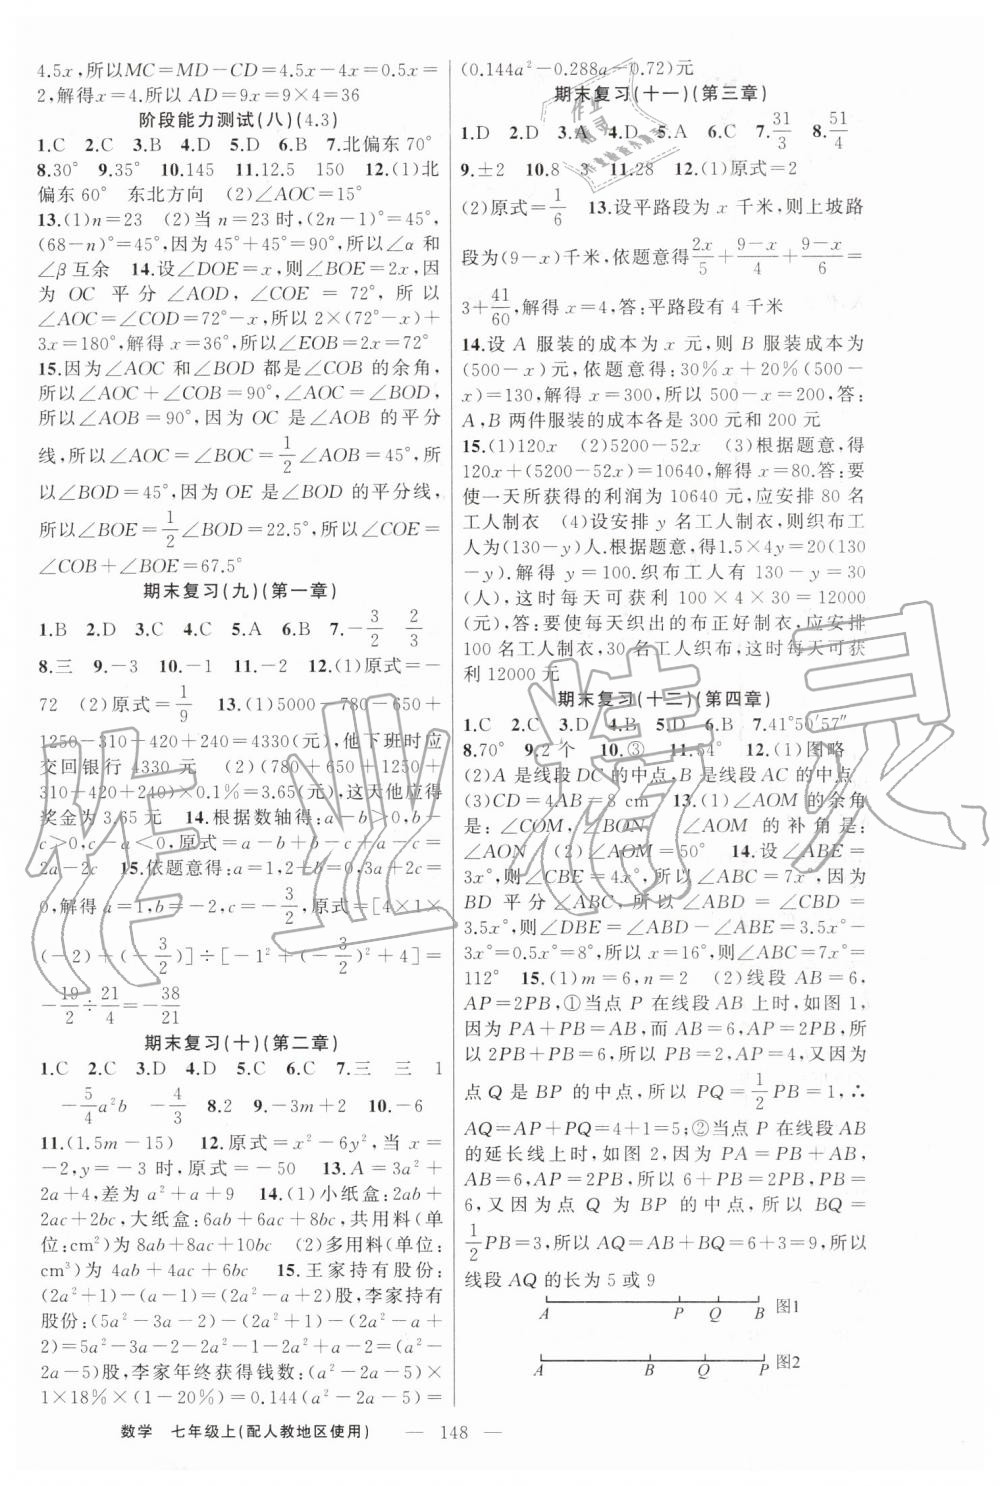 4.5x,所以MC=MD-CD=4.5x-4x=0.5x=
2,解得x=4.所以 AD=9x=9×4=36
阶段能力测试(八)(4.3)
1.C 2.C 3.B 4.D 5.D 6.B 7.北偏东70°
8.30° 9.35° 10.145 11.12.5 150 12.(1)北
偏东60° 东北方向 (2)∠AOC=15°
13.(1)n=23 (2)当n=23时,(2n-1)°=45°,
(68-n)°=45°,因为45°+45°=90°,所以∠α和
∠β互余 14.设∠DOE=x,则∠BOE=2x,因
为 OC 平分∠AOD,∠COE=72°,所以
∠AOC=∠COD=72°-x,所以2×(72°-x)+
3x=180°,解得x=36°,所以∠EOB=2x=72°
15.因为∠AOC和∠BOD都是∠COB的余角,
所以∠AOC+∠COB=90°,∠COB+∠BOD=90°,
所以∠AOB=90°,因为OC是∠AOB的平分
线,所以∠AOC=∠BOC=1/2∠AOB=45°,所
以∠BOD=45°,因为OE是∠BOD的平分线,
所以∠BOE=1/2∠BOD=22.5°,所以∠COE=
∠COB+∠BOE=67.5°
期末复习(九)(第一章)
1.B 2.D 3.C 4.C 5.A 6.D 7.-3/2 2/3
8.三 9.-3 10.-1 11.-2 12.(1)原式=-
72 (2)原式=1/9 13.(1)5000-780-650+
1250-310-420+240=4330(元),他下班时应
交回银行4330元 (2)(780+650+1250+
310+420+240)×0.1%=3.65(元),这天他应得
奖金为3.65元 14.根据数轴得:a-b>0,b-
c>0,c-a<0,原式=a-b+b-c+a-c=
2a-2c 15.依题意得:a=1,2+b=0,3a+2c=
0,解得a=1,b=-2,c=-3/2,原式=[4×1×
(-2)+(-3/2)]÷[-1²+(-3/2)²+4]=
-19/2÷21/4=-38/21
期末复习(十)(第二章)
1.C 2.C 3.D 4.D 5.C 6.C 7.三 三 1
-5/4a²b -4/3 8.2 9.-3m+2 10.-6
11.(1.5m-15) 12.原式=x²-6y²,当x=
-2,y=-3时,原式=-50 13.A=3a²+
2a+4,差为a²+a+9 14.(1)小纸盒:2ab+
2ac+2bc,大纸盒:6ab+6ac+8bc,共用料(单
位:cm²)为8ab+8ac+10bc (2)多用料(单位:
cm³)为4ab+4ac+6bc 15.王家持有股份:
(2a²+1)-(a-1)=(2a²-a+2)股,李家持有
股份:(5a²-3a-2)-(2a²-a+2)-(2a²+1)
=5a²-3a-2-2a²-1-2a²+a-2=(a²-
2a-5)股,李家年终获得钱数:(a²-2a-5)×
1×18%×(1-20%)=0.144(a²-2a-5)=
(0.144a²-0.288a-0.72)元
期末复习(十一)(第三章)
1.D 2.D 3.A 4.D 5.A 6.C 7.31/3 8.51/4
9.±2 10.8 3 11.28 12.(1)原式=2
(2)原式=1/6 13.设平路段为x千米,则上坡路
段为(9-x)千米,依题意得2x/5+9-x/4+9-x/6=
3+41/60,解得x=4,答:平路段有4千米
14.设A服装的成本为x元,则B服装成本为
(500-x)元,依题意得:30%x+20%(500-
x)=130,解得x=300,所以500-x=200,答:
A,B两件服装的成本各是300元和200元
15.(1)120x (2)5200-52x (3)根据题意,得
120x+(5200-52x)=10640,解得x=80.答:要
使一天所获得的利润为10640元,应安排80名
工人制衣 (4)设安排y名工人制衣,则织布工
人为(130-y)人.根据题意,得1.5×4y=20(130
-y).解得y=100.织布工人有130-y=30
(人),这时每天可获利100×4×30=12000
(元),答:要使每天织出的布正好制衣,应安排
100名工人制衣,30名工人织布,这时每天可获
利12000元
期末复习(十二)(第四章)
1.C 2.C 3.D 4.B 5.D 6.B 7.41°50′57″
8.70° 9.2个 10.③ 11.64° 12.(1)图略
(2)A是线段DC的中点,B是线段AC的中点
(3)CD=4AB=8 cm 13.(1)∠AOM的余角
是:∠COM,∠BON,∠AOM的补角是:
∠AON (2)∠AOM=50° 14.设∠ABE=
3x°,则∠CBE=4x°,所以∠ABC=7x°,因为
BD平分∠ABC,所以∠ABD=∠CBD=
3.5x°,所以∠DBE=∠ABD-∠ABE=3.5x°-
3x°=0.5x°=8°,所以x=16°,所以∠ABC=7x°=
112° 15.(1)m=6,n=2 (2)线段AB=6,
AP=2PB,①当点P在线段AB上时,如图1,
因为PA+PB=AB,而AB=6,AP=2PB,所
以2PB+PB=6,所以PB=2,AP=4,又因为
点Q是BP的中点,所以PQ=1/2PB=1,∴
AQ=AP+PQ=4+1=5;②当点P在线段AB
的延长线上时,如图2,因为PA=PB+AB,
AB=6,AP=2PB,所以6+PB=2PB,所以PB=
6,又因为点Q为BP的中点,所以BQ=
1/2PB=3,所以AQ=AB+BQ=6+3=9,所以
线段AQ的长为5或9
A P Q B 图1
A B Q P 图2
数学 七年级上(配人教地区使用) — 148 —
作业精灵